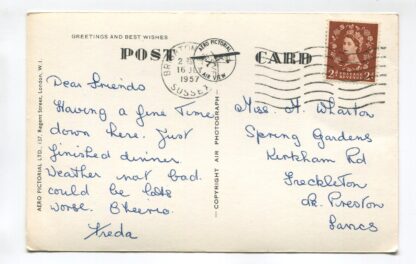 GREETINGS AND BEST WISHES
POST CARD
AERO PICTORIAL
AIR VIEW
BRIGHTON
16 JLY
1957
SUSSEX
2D 2D
Dear Friends
Having a fine Time
down here. Just
finished dinner.
Weather not bad.
could be lots
worse. Cheerio.
Freda
Miss H. Wharton
Spring Gardens
Kirkham Rd
Freckleton
nr. Preston
Lancs
AERO PICTORIAL LTD., 137, Regent Street, London, W.1.
COPYRIGHT AIR PHOTOGRAPH